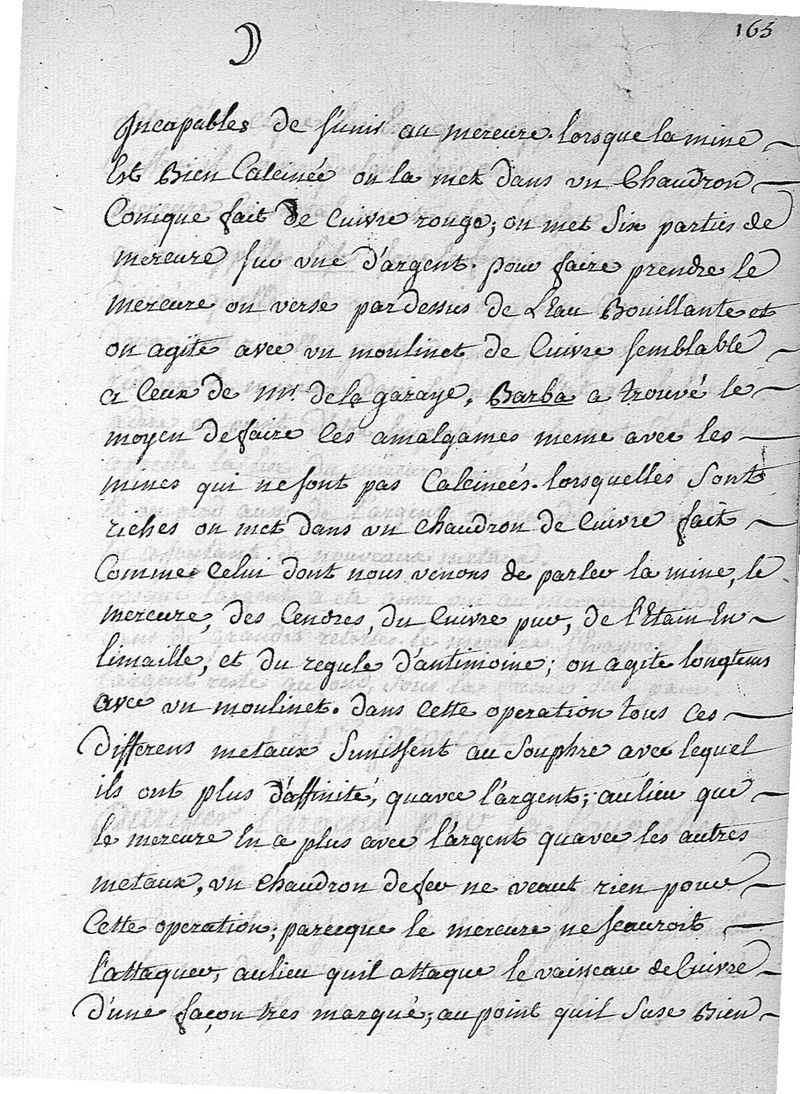 ☽
165
Incapables de s'unir au mercure. lorsque la mine
Est Bien Calcinée on la met dans un Chaudron
Conique fait de Cuivre rouge; on met Six parties de
mercure sur une d'argent. pour faire prendre le
mercure on verse par dessus de L'Eau Bouillante et
on agite avec un moulinet de Cuivre semblable
a Ceux de mr. de la garaye. Barba a trouvé le
moyen de faire Ces amalgames meme avec les
mines qui ne sont pas Calcineés. lorsquelles Sont
riches on met dans un Chaudron de Cuivre fait
Comme Celui dont nous venons de parler la mine, le
mercure, des Cendres, du Cuivre pur, de l'Etain En
limaille, et du regule d'antimoine; on agite longtems
avec un moulinet. dans Cette operation tous Ces
differens metaux Sunissent au Souphre avec lequel
ils ont plus d'affinité, quavec l'argent; aulieu que
le mercure En a plus avec l'argent quavec les autres
metaux, un Chaudron de fer ne veaut rien pour
Cette operation; parceque le mercure ne scauroit
l'attaquer, aulieu quil attaque le vaisseau de Cuivre
d'une façon tres marqué; au point quil Suse Bien